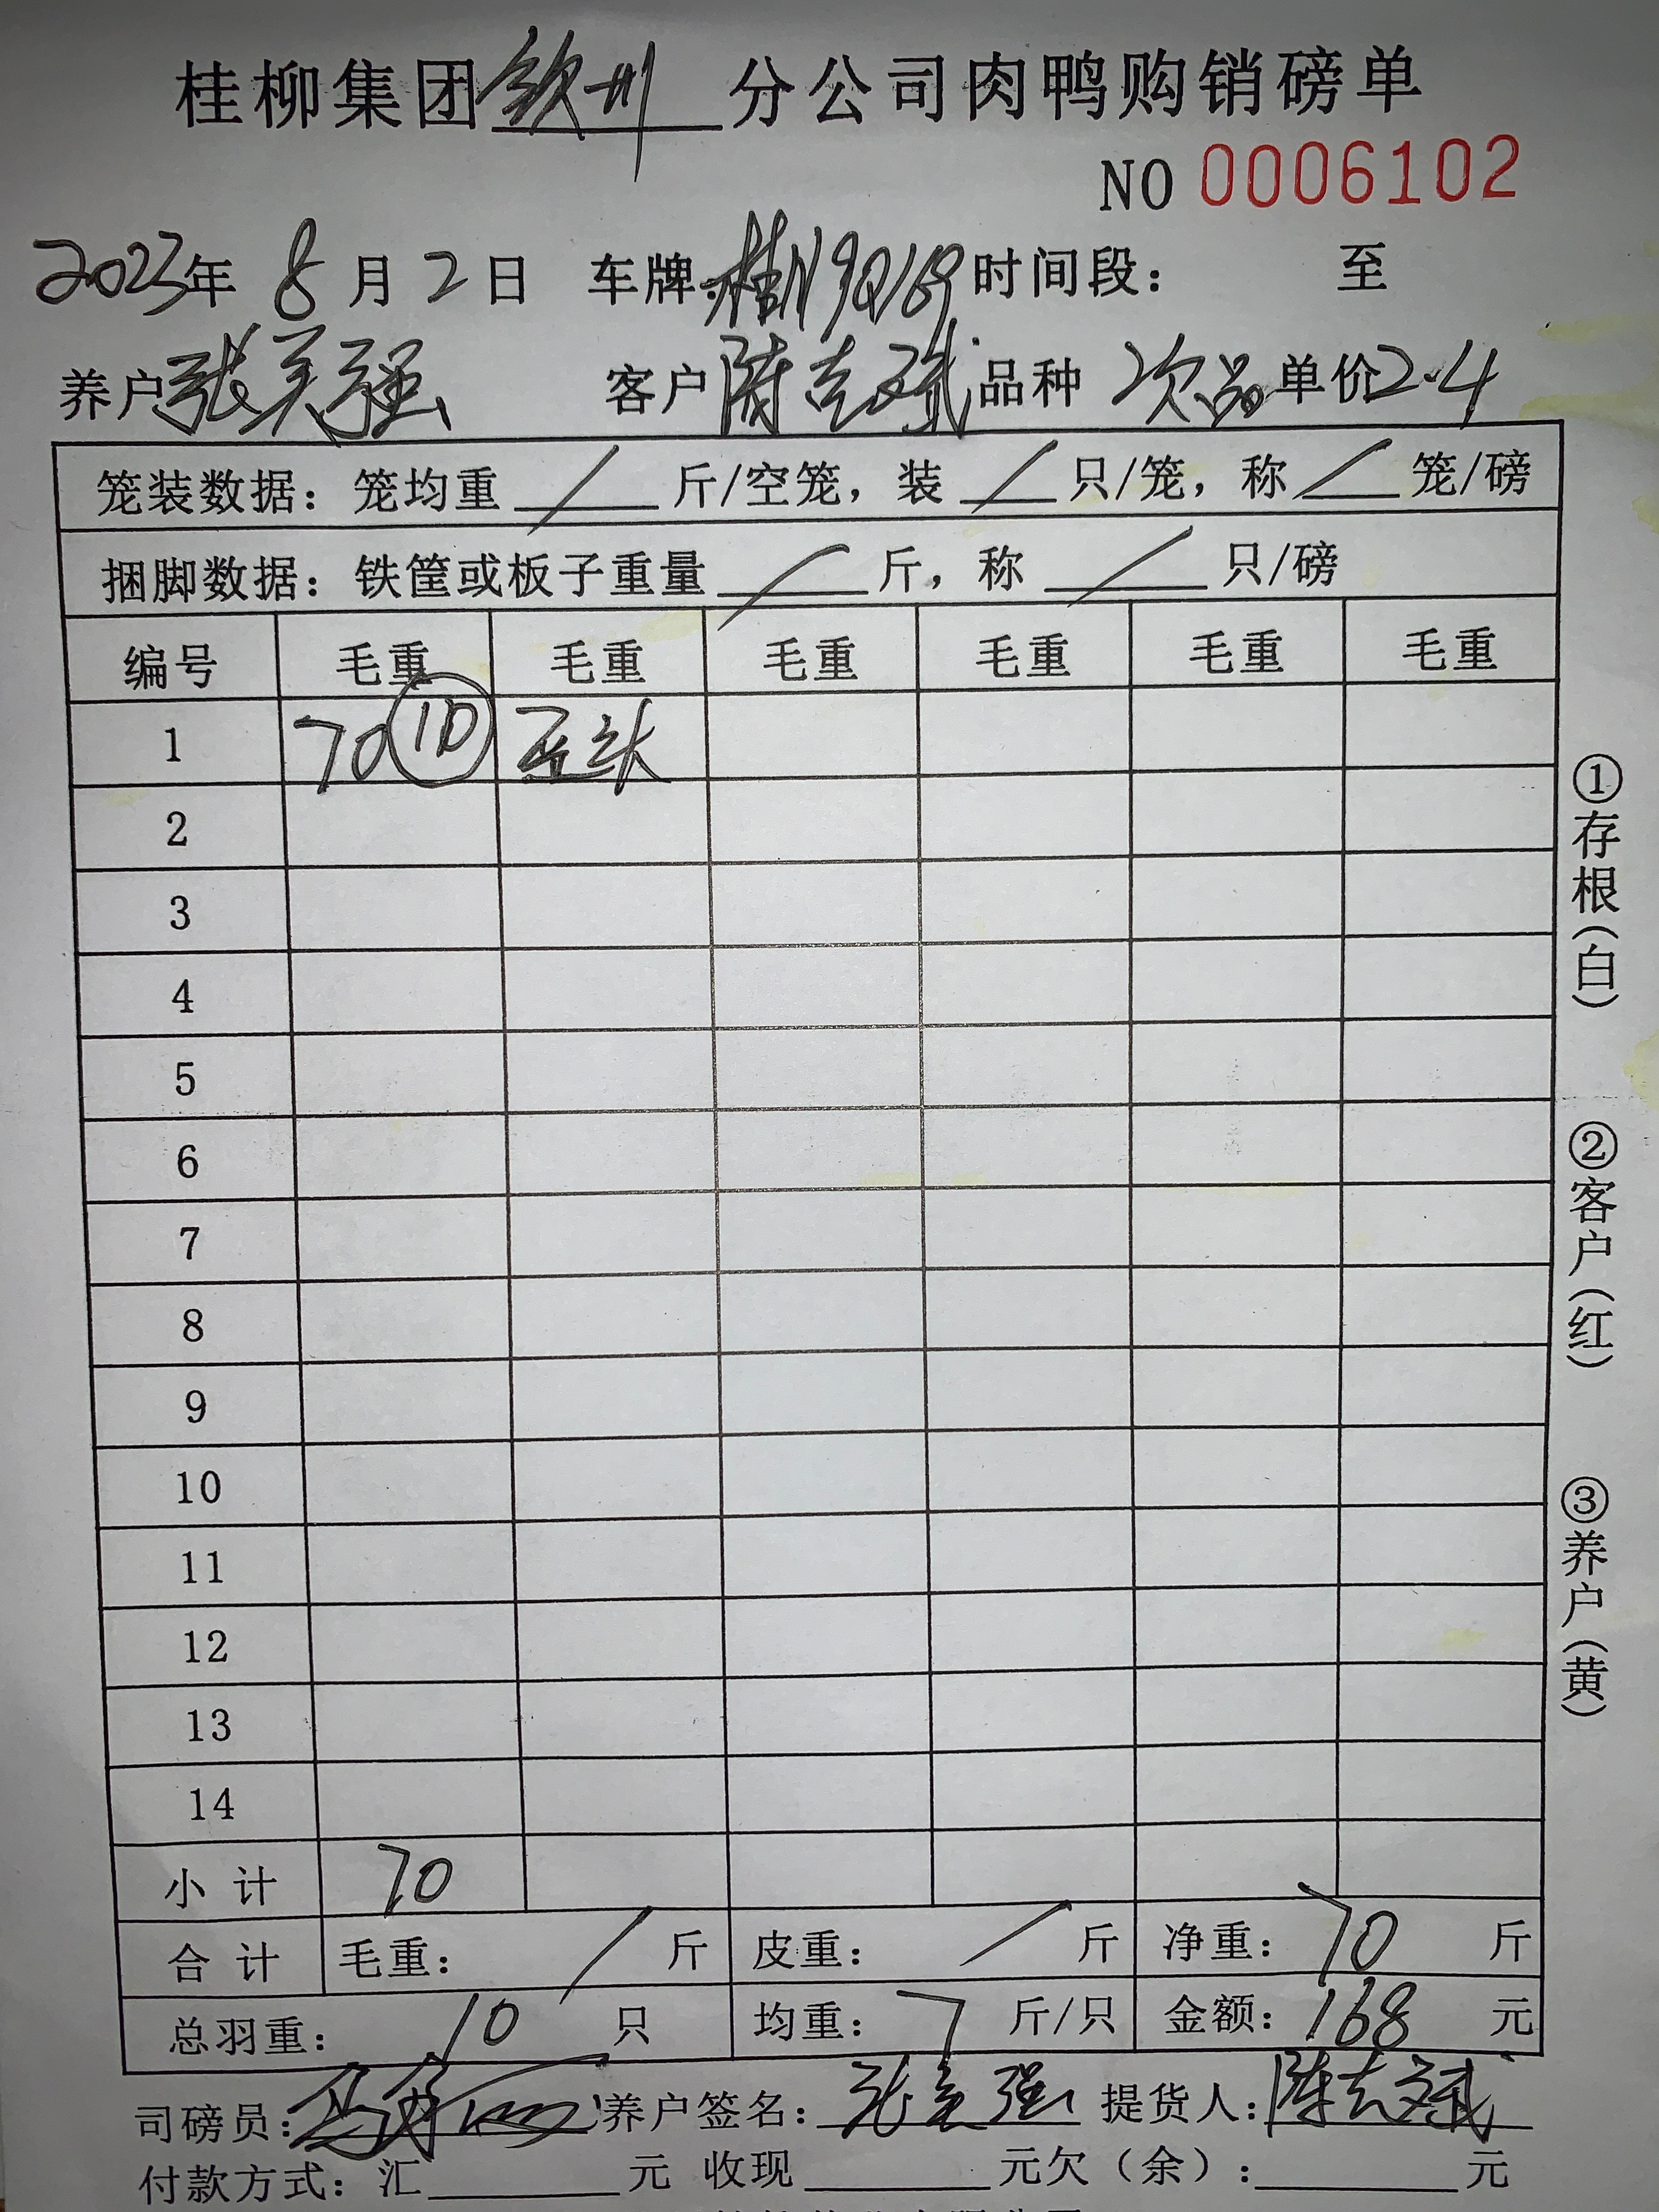 桂柳集团钦州分公司肉鸭购销磅单
NO 0006102
2023年 8月2日 车牌:桂N9Q169 时间段: 至
养户 张美强 客户 陈克斌 品种 次品 单价2.4
笼装数据:笼均重 / 斤/空笼,装 / 只/笼,称 / 笼/磅
捆脚数据:铁筐或板子重量 / 斤,称 / 只/磅
编号 毛重 毛重 毛重 毛重 毛重 毛重
1 70 ⑩
2
3
4
5
6
7
8
9
10
11
12
13
14
小计 70
合计 毛重: / 斤 皮重: / 斤 净重: 70 斤
总羽重: 10 只 均重: 7 斤/只 金额: 168 元
司磅员: 养户签名: 张美强 提货人: 陈克斌
付款方式:汇 元 收现 元欠(余): 元
①存根(白)
②客户(红)
③养户(黄)